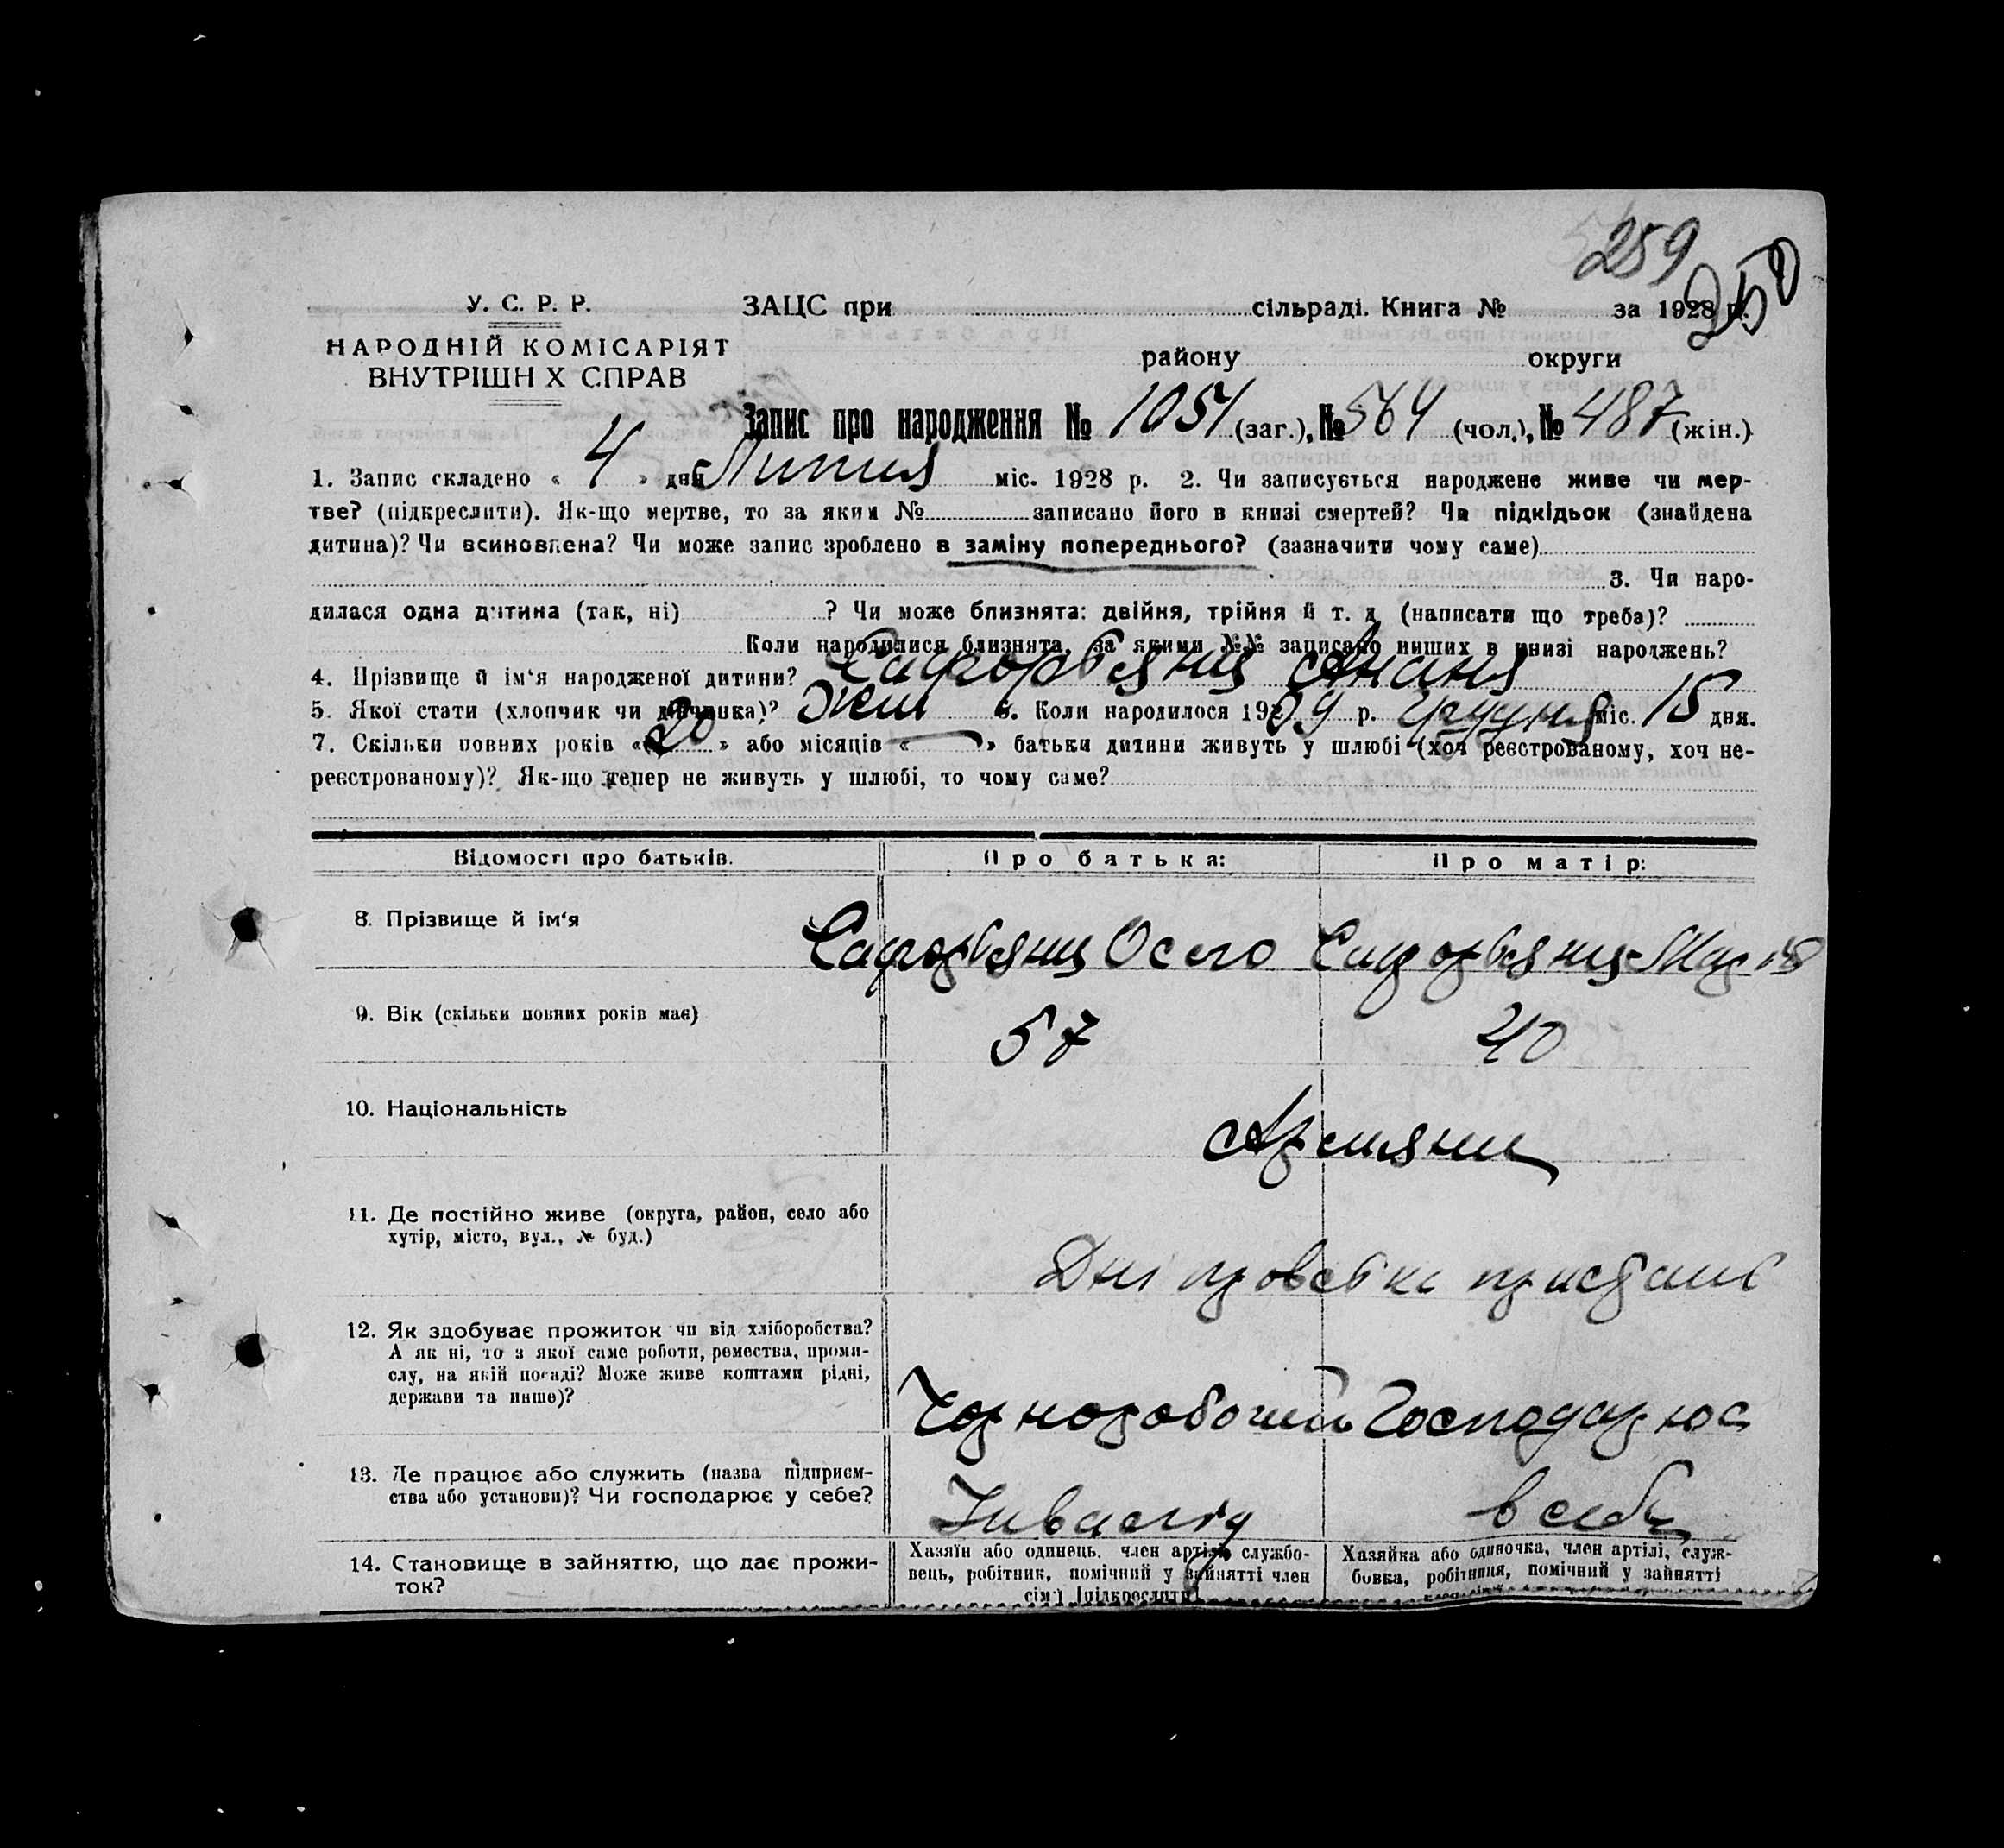 259
250
У. С. Р. Р.
ЗАЦС при сільраді. Книга № за 1928 р.
НАРОДНІЙ КОМІСАРІЯТ
ВНУТРІШН Х СПРАВ
району округи
Запис про народження № 1051 (заг.), № 564 (чол.), № 487 (жін.)
1. Запис складено « 4 » дня Липня міс. 1928 р. 2. Чи записується народжене живе чи мер-
тве? (підкреслити). Як-що мертве, то за яким № записано його в книзі смертей? Чи підкідьок (знайдена
дитина)? Чи всиновлена? Чи може запис зроблено в заміну попереднього? (зазначити чому саме)
3. Чи наро-
дилася одна дитина (так, ні) ? Чи може близнята: двійня, трійня й т. д. (написати що треба)?
Коли народилися близнята, за якими №№ записано инших в книзі народжень?
4. Прізвище й ім'я народженої дитини?
5. Якої стати (хлопчик чи дівчинка)? Жін 6. Коли народилося 1909 р. Грудня міс. 15 дня.
7. Скільки повних років « 20 » або місяців « — » батьки дитини живуть у шлюбі (хоч реєстрованому, хоч не-
реєстрованому)? Як-що тепер не живуть у шлюбі, то чому саме?
Відомості про батьків. Про батька: Про матір:
8. Прізвище й ім'я
9. Вік (скільки повних років має) 57 40
10. Національність Армяни
11. Де постійно живе (округа, район, село або
хутір, місто, вул., № буд.)
Дніпровські пристані
12. Як здобуває прожиток чи від хліборобства?
А як ні, то з якої саме роботи, ремества, проми-
слу, на якій посаді? Може живе коштами рідні,
держави та инше)?
Чорноробочий Господарює
13. Де працює або служить (назва підприєм-
ства або установи)? Чи господарює у себе?
Інвалід в себе
14. Становище в зайняттю, що дає прожи-
ток?
Хазяїн або одинець, член артілі, службо-
вець, робітник, помічний у зайнятті член
сім'ї (підкреслити)
Хазяйка або одиночка, член артілі, служ-
бовка, робітниця, помічний у зайнятті